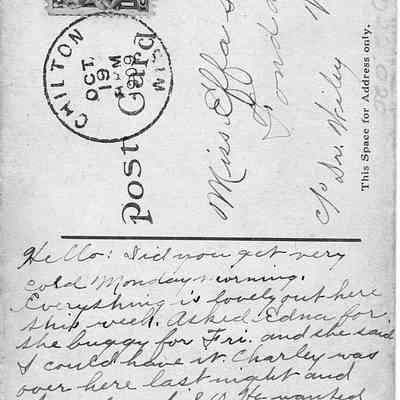 CHILTON
OCT
19
1909
WIS
Post Card
Miss Effa
Fond
c/o Dr. Wiley
This Space for Address only.
Hello: Did you get very
cold Monday morning.
Everything is lovely out here
this week. Asked Edna for
the buggy for Fri. and she said
I could have it. Charley was
over here last night and
wanted